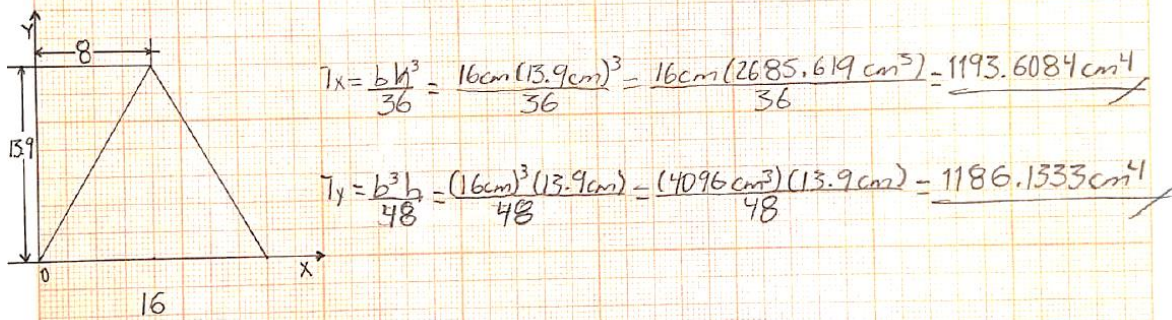 Y
8
13.9
0
X
16
Ix = bh³/36 = 16cm(13.9cm)³/36 = 16cm(2685.619 cm³)/36 = 1193.6084 cm⁴
Iy = b³h/48 = (16cm)³(13.9cm)/48 = (4096 cm³)(13.9cm)/48 = 1186.1333 cm⁴